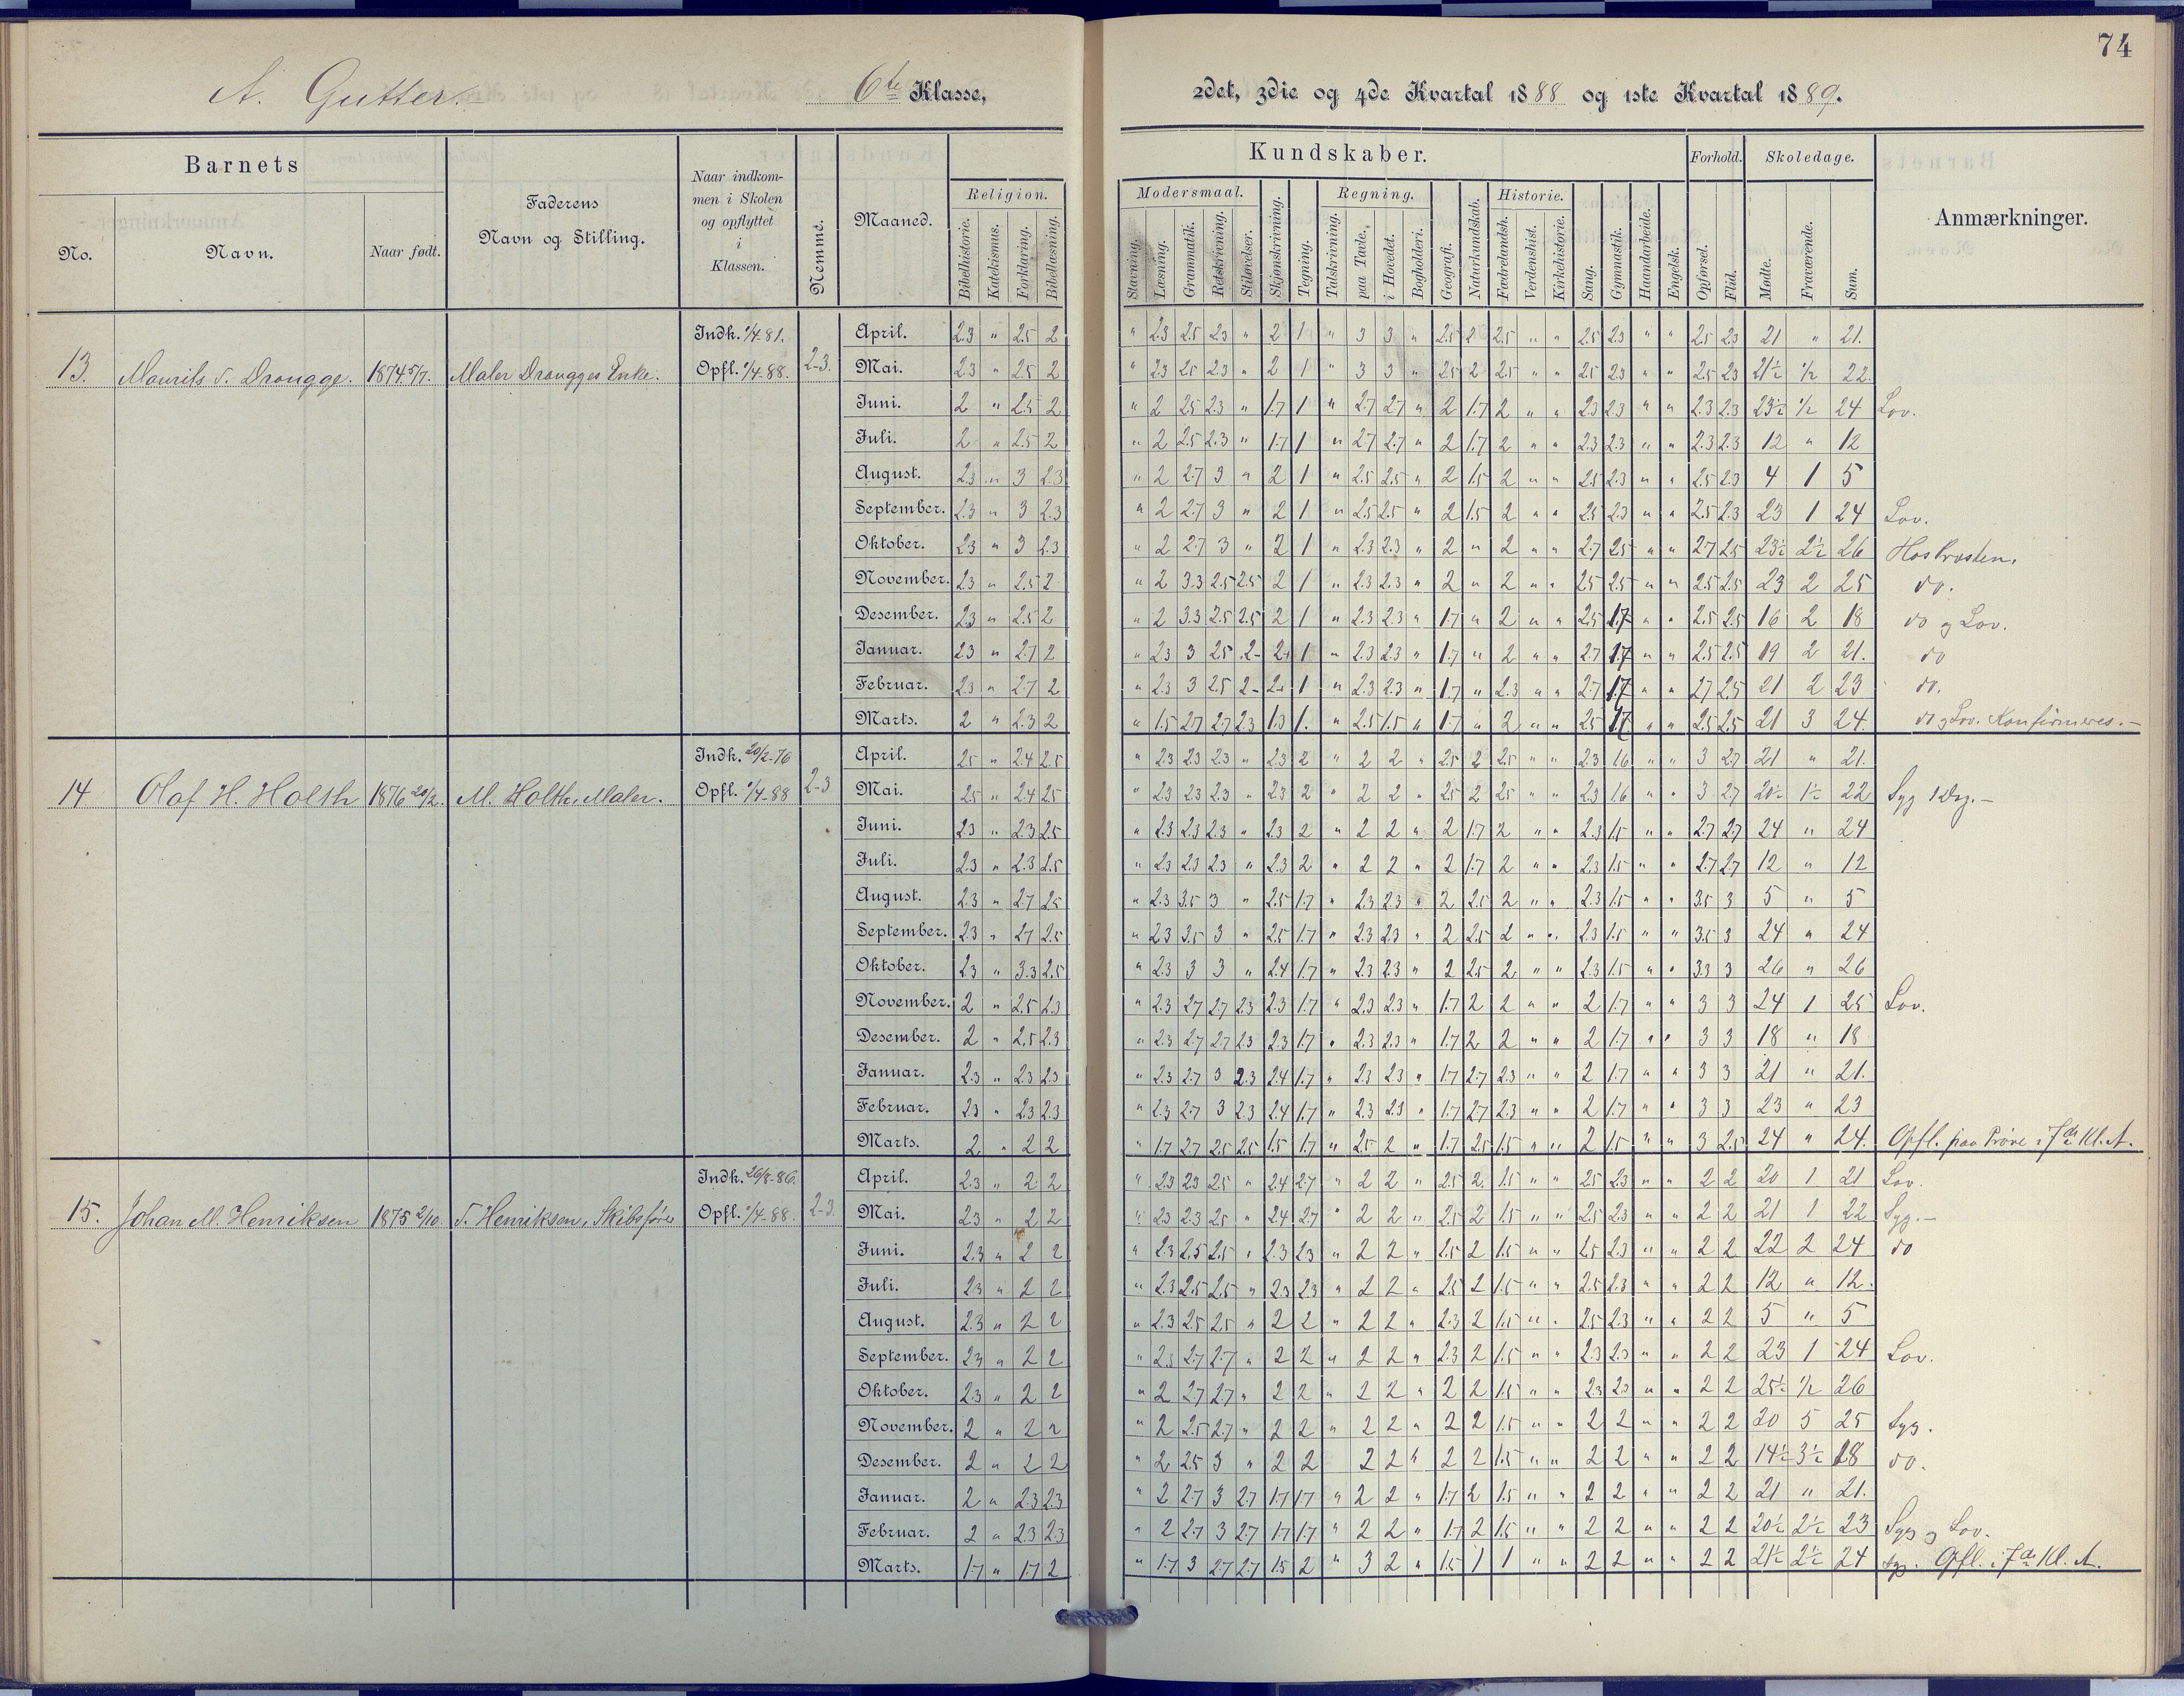 74
A. Gutter. 6te Klasse, 2det, 3die og 4de Kvartal 1888 og 1ste Kvartal 1889.
Barnets
No.
Navn.
Naar født.
Faderens
Navn og Stilling.
Naar indkom-
men i Skolen
og opflyttet
i
Klassen.
Nemme.
Maaned.
Kundskaber.
Religion.
Bibelhistorie.
Katekismus.
Forklaring.
Bibellæsning.
Modersmaal.
Stavning.
Læsning.
Grammatik.
Retskrivning.
Stiløvelser.
Skjønskrivning.
Tegning.
Regning.
Talskrivning.
paa Tavle.
i Hovedet.
Bogholderi.
Geografi.
Naturkundskab.
Historie.
Fædrelandsh.
Verdenshist.
Kirkehistorie.
Sang.
Gymnastik.
Haandarbeide.
Engelsk.
Forhold.
Opførsel.
Flid.
Skoledage.
Mødte.
Fraværende.
Sum.
Anmærkninger.
13. Maurits Drougge. 1874 5/7. Maler Drougges Enke. Indk. 1/4 81. Opfl. 1/4-88. 2-3.
April. 2.3 " 2.5 2 " 2.3 2.5 2.3 " 2 1 " 3 3 " 2.5 2 2.5 " " 2.5 2.3 " " 2.5 2.3 21 " 21.
Mai. 2.3 " 2.5 2 " 2.3 2.5 2.3 " 2 1 " 3 3 " 2.5 2 2.5 " " 2.5 2.3 " " 2.5 2.3 21½ ½ 22.
Juni. 2 " 2.5 2 " 2 2.5 2.3 " 1.7 1 " 2.7 2.7 " 2 1.7 2 " " 2.3 2.3 " " 2.3 2.3 23½ ½ 24 Lov.
Juli. 2 " 2.5 2 " 2 2.5 2.3 " 1.7 1 " 2.7 2.7 " 2 1.7 2 " " 2.3 2.3 " " 2.3 2.3 12 " 12
August. 2.3 " 3 2.3 " 2 2.7 3 " 2 1 " 2.5 2.5 " 2 1.5 2 " " 2.5 2.3 " " 2.5 2.3 4 1 5
September. 2.3 " 3 2.3 " 2 2.7 3 " 2 1 " 2.5 2.5 " 2 1.5 2 " " 2.5 2.3 " " 2.5 2.3 23 1 24 Lov.
Oktober. 2.3 " 3 2.3 " 2 2.7 3 " 2 1 " 2.3 2.3 " 2 " 2 " " 2.7 2.5 " " 2.7 2.5 23½ 2½ 26 Hos Presten.
November. 2.3 " 2.5 2 " 2 3.3 2.5 2.5 2 1 " 2.3 2.3 " 2 " 2 " " 2.5 2.5 " " 2.5 2.5 23 2 25 do.
Desember. 2.3 " 2.5 2 " 2 3.3 2.5 2.5 2 1 " 2.3 2.3 " 1.7 " 2 " " 2.5 1.7 " " 2.5 2.5 16 2 18 do og Lov.
Januar. 2.3 " 2.7 2 " 2.3 3 2.5 2- 2+ 1 " 2.3 2.3 " 1.7 " 2 " " 2.7 1.7 " " 2.5 2.5 19 2 21. do
Februar. 2.3 " 2.7 2 " 2.3 3 2.5 2- 2+ 1 " 2.3 2.3 " 1.7 " 2.3 " " 2.7 1.7 " " 2.7 2.5 21 2 23 do.
Marts. 2 " 2.3 2 " 1.5 2.7 2.7 2.3 1.3 1. " 2.5 1.5 " 1.7 " 2 " " 2.5 1.7 " " 2.5 2.5 21 3 24. do og Lov. Konfirmeres.—
14 Olaf H. Holth 1876 20/2. M. Holth, Maler. Indk. 20/2-76 Opfl. 1/4-88 2-3
April. 2.5 " 2.4 2.5 " 2.3 2.3 2.3 " 2.3 2 " 2 2 " 2.5 2 2.5 " " 2.3 1.6 " " 3 2.7 21 " 21.
Mai. 2.5 " 2.4 2.5 " 2.3 2.3 2.3 " 2.3 2 " 2 2 " 2.5 2 2.5 " " 2.3 1.6 " " 3 2.7 20½ 1½ 22 Syg 1 Dag.—
Juni. 2.3 " 2.3 2.5 " 2.3 2.3 2.3 " 2.3 2 " 2 2 " 2 1.7 2 " " 2.3 1.5 " " 2.7 2.7 24 " 24
Juli. 2.3 " 2.3 2.5 " 2.3 2.3 2.3 " 2.3 2 " 2 2 " 2 1.7 2 " " 2.3 1.5 " " 2.7 2.7 12 " 12
August. 2.3 " 2.7 2.5 " 2.3 3.5 3 " 2.5 1.7 " 2.3 2.3 " 2 2.5 2 " " 2.3 1.5 " " 3.5 3 5 " 5
September. 2.3 " 2.7 2.5 " 2.3 3.5 3 " 2.5 1.7 " 2.3 2.3 " 2 2.5 2 " " 2.3 1.5 " " 3.5 3 24 " 24
Oktober. 2.3 " 3.3 2.5 " 2.3 3 3 " 2.4 1.7 " 2.3 2.3 " 2 2.5 2 " " 2.3 1.5 " " 3.3 3 26 " 26
November. 2 " 2.5 2.3 " 2.3 2.7 2.7 2.3 2.3 1.7 " 2.3 2.3 " 1.7 2 2 " " 2 1.7 " " 3 3 24 1 25 Lov.
Desember. 2 " 2.5 2.3 " 2.3 2.7 2.7 2.3 2.3 1.7 " 2.3 2.3 " 1.7 2 2 " " 2 1.7 " " 3 3 18 " 18
Januar. 2.3 " 2.3 2.3 " 2.3 2.7 3 2.3 2.4 1.7 " 2.3 2.3 " 1.7 2.7 2.3 " " 2 1.7 " " 3 3 21 " 21.
Februar. 2.3 " 2.3 2.3 " 2.3 2.7 3 2.3 2.4 1.7 " 2.3 2.3 " 1.7 2.7 2.3 " " 2 1.7 " " 3 3 23 " 23
Marts. 2 " 2 2 " 1.7 2.7 2.5 2.5 1.5 1.7 " 2.5 2 " 1.7 2.5 1.5 " " 2 1.5 " " 3 2.5 24 " 24. Opfl. paa Prøve i 7de Kl. A.
15. Johan M. Henriksen 1875 2/10. Henriksen, Skibsfører Indk. 26/8-86. Opfl. 1/4-88. 2-3.
April. 2.3 " 2 2 " 2.3 2.3 2.5 " 2.4 2.7 " 2 2 " 2.5 2 1.5 " " 2.5 2.3 " " 2 2 20 1 21 Lov.
Mai. 2.3 " 2 2 " 2.3 2.3 2.5 " 2.4 2.7 " 2 2 " 2.5 2 1.5 " " 2.5 2.3 " " 2 2 21 1 22 Syg.—
Juni. 2.3 " 2 2 " 2.3 2.5 2.5 " 2.3 2.3 " 2 2 " 2.5 2 1.5 " " 2.5 2.3 " " 2 2 22 2 24 do
Juli. 2.3 " 2 2 " 2.3 2.5 2.5 " 2.3 2.3 " 2 2 " 2.5 2 1.5 " " 2.5 2.3 " " 2 2 12 " 12.
August. 2.3 " 2 2 " 2.3 2.5 2.5 " 2 2 " 2 2 " 2.3 2 1.5 " " 2.5 2.3 " " 2 2 5 " 5
September. 2.3 " 2 2 " 2.3 2.7 2.7 " 2 2 " 2 2 " 2.3 2 1.5 " " 2.3 2.3 " " 2 2 23 1 24 Lov.
Oktober. 2.3 " 2 2 " 2 2.7 2.7 " 2 2 " 2 2 " 2 2 1.5 " " 2.3 2.3 " " 2 2 25½ ½ 26
November. 2 " 2 2 " 2 2.5 2.7 " 2 2 " 2 2 " 2 2 1.5 " " 2 2 " " 2 2 20 5 25 Syg.
Desember. 2 " 2 2 " 2 2.5 3 " 2 2 2 2 " 2 2 1.5 " " 2 2 " " 2 2 14½ 3½ 18 do.
Januar. 2 " 2.3 2.3 " 2 2.7 3 2.7 1.7 1.7 " 2 2 " 1.7 2 1.5 " " 2 2 " " 2 2 21 " 21.
Februar. 2 " 2.3 2.3 " 2 2.7 3 2.7 1.7 1.7 " 2 2 " 1.7 2 1.5 " " 2 2 " " 2 2 20½ 2½ 23 Syg og Lov.
Marts. 1.7 " 1.7 2 " 1.7 3 2.7 2.7 1.5 2 " 3 2 " 1.5 1 1 " " 2 2 " " 2 2 21½ 2½ 24 Syg. Opfl. i 7de Kl. A.